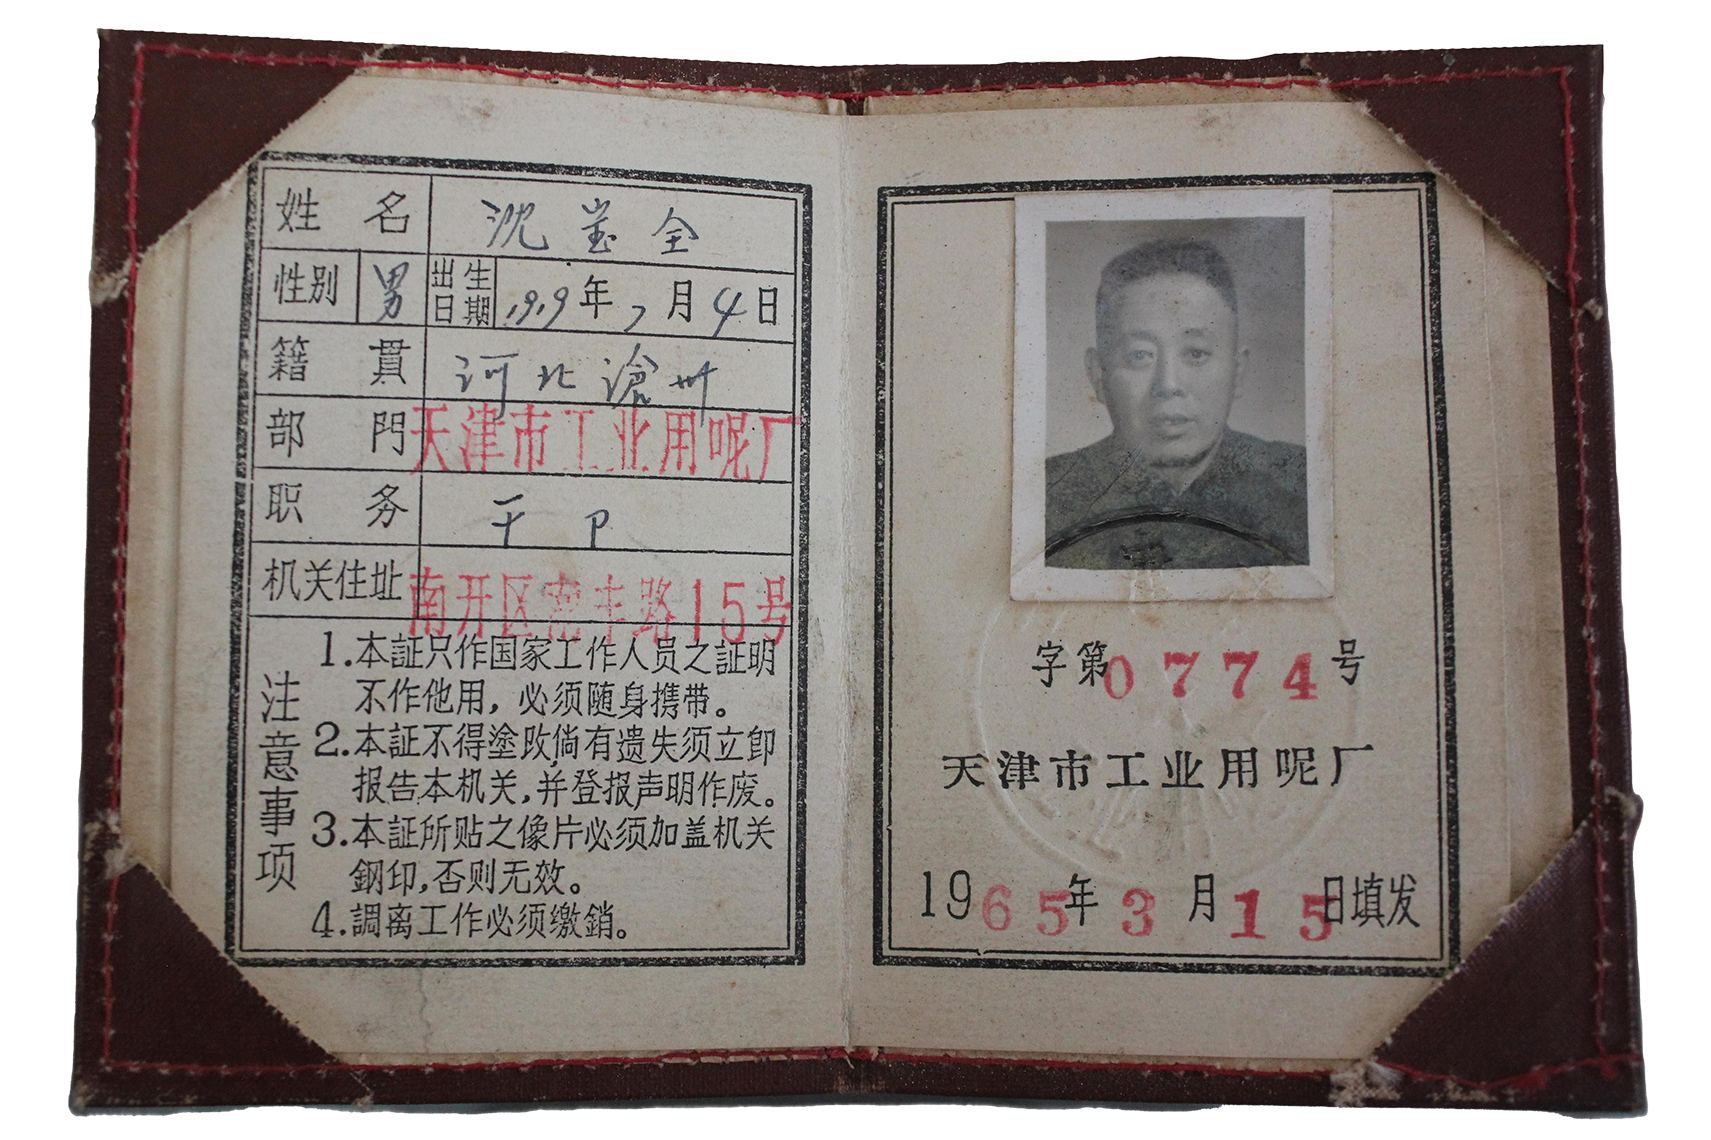 姓名 沈宝全
性别 男 出生日期 1919年7月4日
籍貫 河北滄州
部門 天津市工业用呢厂
职务 干卩
机关住址 南开区宏丰路15号
注意事项
1.本証只作国家工作人员之証明
不作他用，必须随身携带。
2.本証不得塗改倘有遗失须立卽
报告本机关，并登报声明作废。
3.本証所贴之像片必须加盖机关
鋼印，否则无效。
4.調离工作必须缴銷。
字第0774号
天津市工业用呢厂
1965年3月15日填发